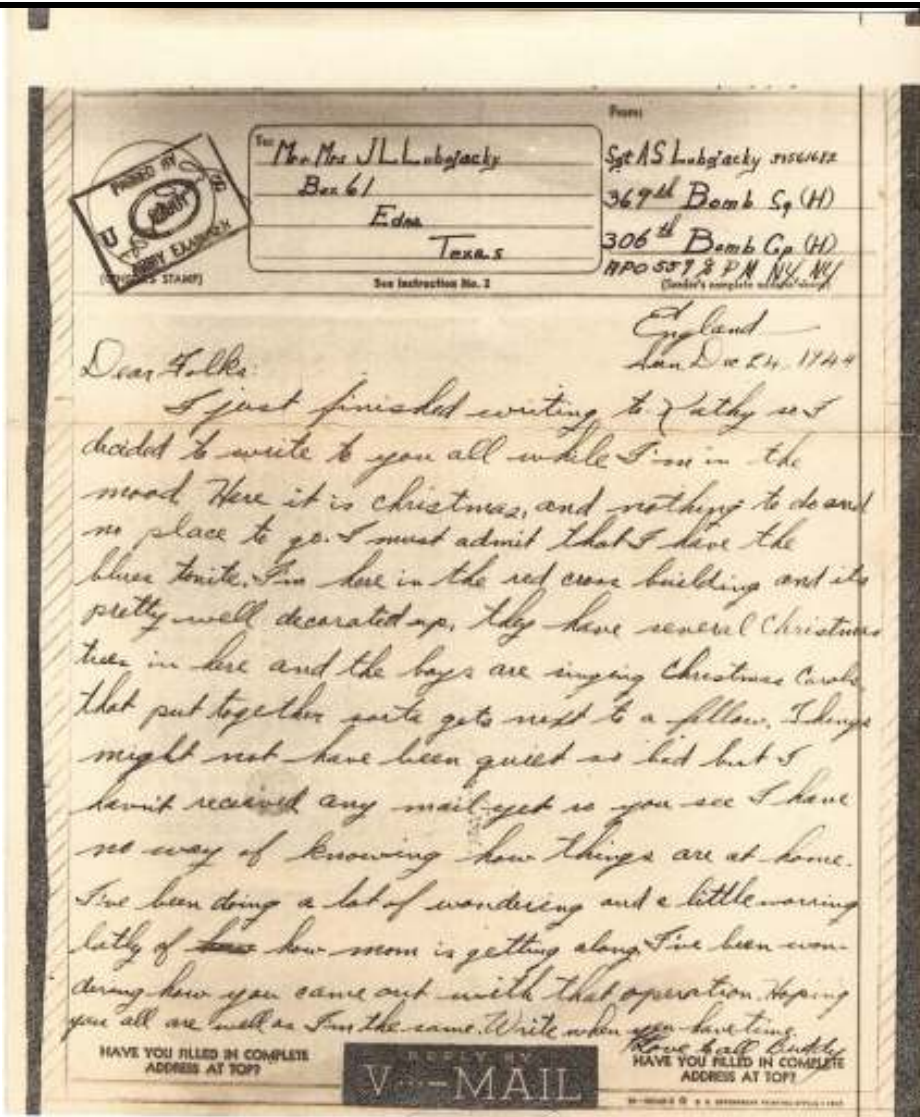 From:
To: Mr. Mrs J L Lubojacky
Box 61
Edna
Texas
Sgt A S Lubojacky
369th Bomb Sq (H)
306th Bomb Gp (H)
APO 557 % P M NY, NY
PASSED BY
U
ARMY EXAMINER
(CENSOR'S STAMP)
See Instruction No. 2
(Sender's complete address above)
England
Sun Dec 24, 1944
Dear Folks:
I just finished writing to Kathy so I
decided to write to you all while I'm in the
mood. Here it is christmas, and nothing to do and
no place to go. I must admit that I have the
blues tonite. I'm here in the red cross building and its
pretty well decorated up, they have several Christmas
trees in here and the boys are singing Christmas Carols,
that put together sorta gets next to a fellow. Things
might not have been quiet so bad but I
havn't received any mail yet so you see I have
no way of knowing how things are at home.
I've been doing a lot of wondering and a little worring
latly of how mom is getting along. I've been won-
dering how you came out with that operation. Hoping
you all are well as I'm the same. Write when you have time.
Love to all Buddy
HAVE YOU FILLED IN COMPLETE
ADDRESS AT TOP?
REPLY BY
V···—MAIL
HAVE YOU FILLED IN COMPLETE
ADDRESS AT TOP?